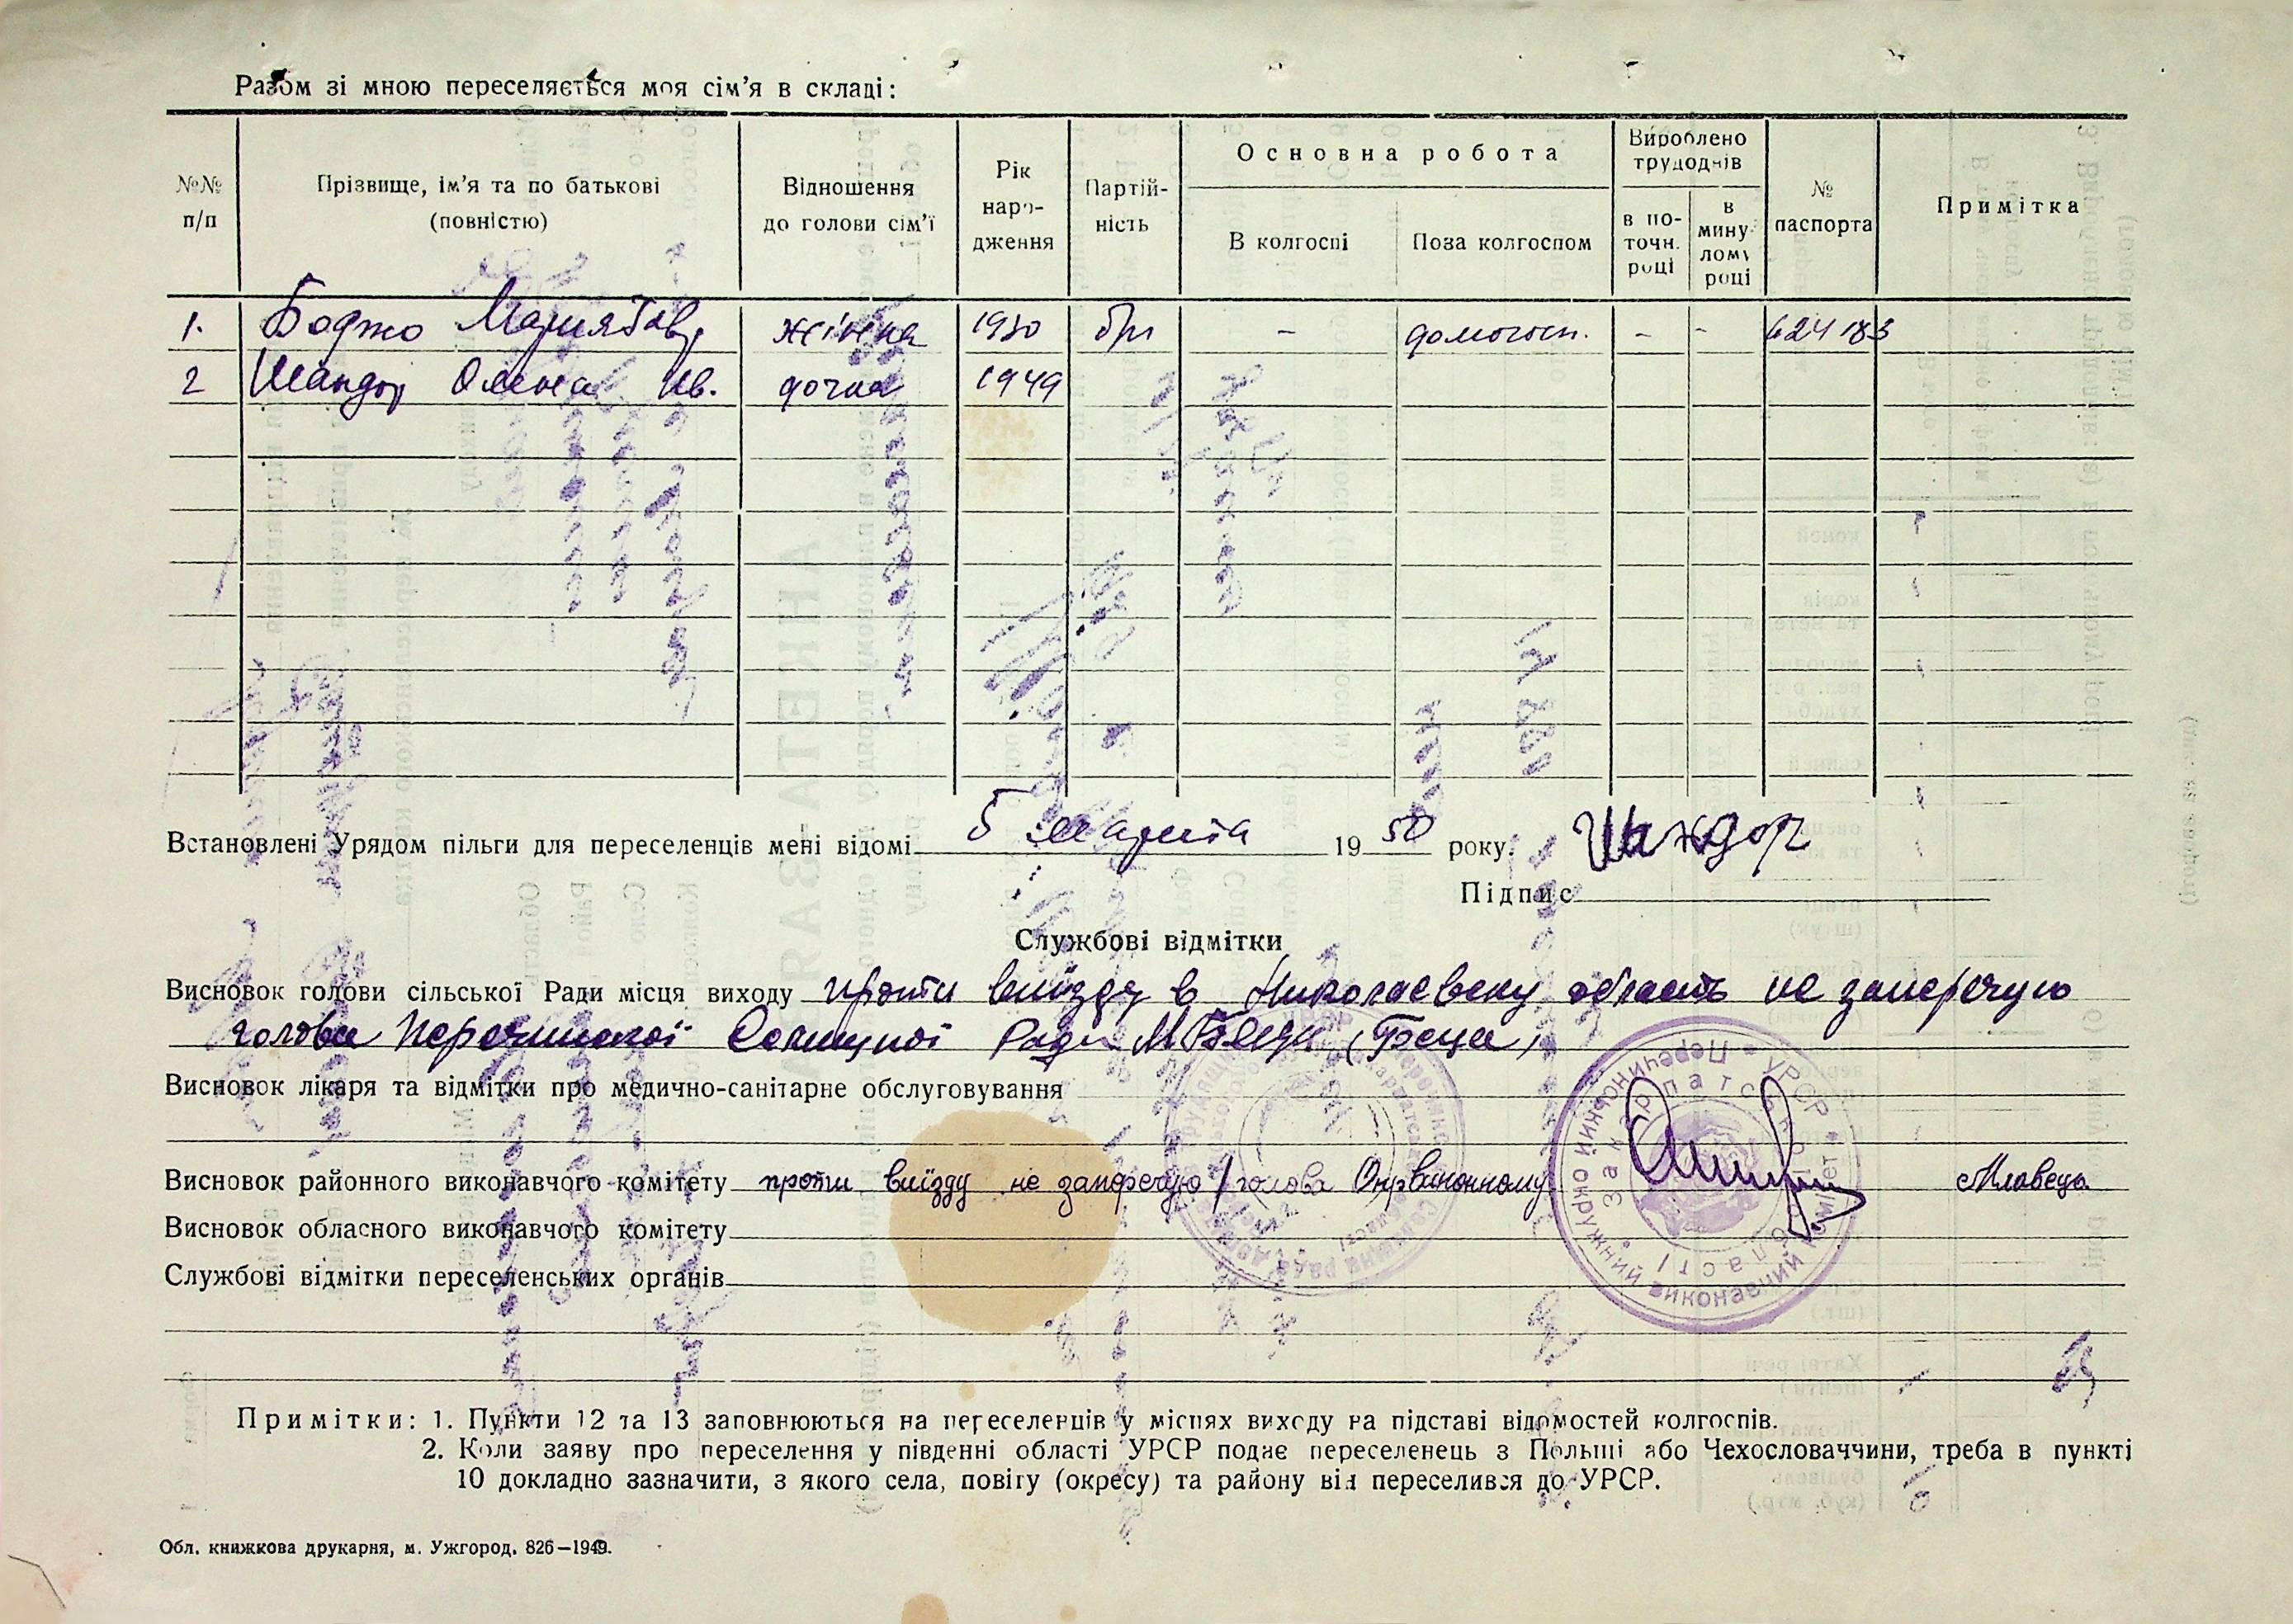 Разом зі мною переселяється моя сім'я в складі:
№№ п/п | Прізвище, ім'я та по батькові (повністю) | Відношення до голови сім'ї | Рік наро-дження | Партій-ність | Основна робота | Вироблено трудоднів | № паспорта | Примітка
В колгоспі | Поза колгоспом | в по-точн. році | в мину-лому році
1. Боджо Мария Гавр жінка 1930 бп – домогосп. – – 624183
2 Шандор Олена Ив. дочка 1949
Встановлені Урядом пільги для переселенців мені відомі 5 марта 1950 року. Шандор
Підпис
Службові відмітки
Висновок голови сільської Ради місця виходу проти виїзду в Николаевску область не заперечую
голова Перечинської Селищної Ради (Геца)
Висновок лікаря та відмітки про медично-санітарне обслуговування
Висновок районного виконавчого комітету проти виїзду не заперечую / голова Окрвиконкому
Висновок обласного виконавчого комітету
Службові відмітки переселенських органів
Примітки: 1. Пункти 12 та 13 заповнюються на переселенців у місцях виходу на підставі відомостей колгоспів.
2. Коли заяву про переселення у південні області УРСР подає переселенець з Польщі або Чехословаччини, треба в пункті
10 докладно зазначити, з якого села, повіту (окресу) та району він переселився до УРСР.
Обл. книжкова друкарня, м. Ужгород. 826—1949.